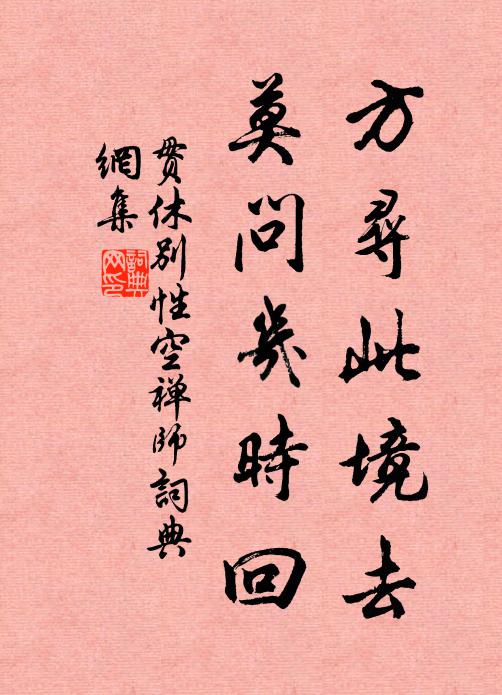 方尋此境去
莫問幾時回
貫休别性空禅師詞典
網集
詞典网印